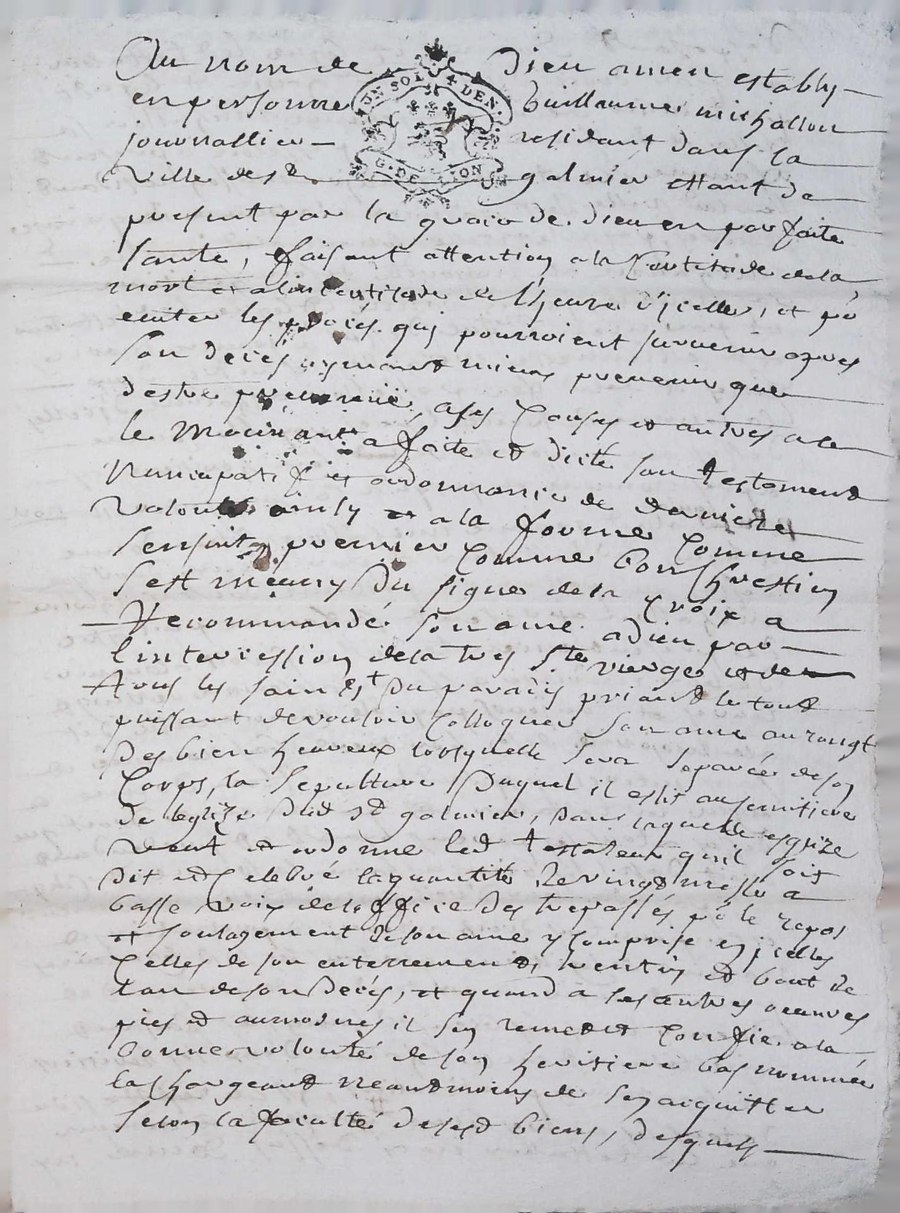 Au nom de Dieu amen estably
UN SOL 4 DEN.
G. DE LION
en personne Guillaume michallon
journallier residant dans la
ville de St galmier estant de
present par la grace de dieu en parfaite
sante, faisant attention a la Certitude de la
mort et a lincertitude de lheure dicelle, et po
eviter les procés qui pourroient survenir apres
son decés aymant mieux prevenir que
destre prevenu, a ses Causes et autres a le
le mouvant a faite et dicté son testament
nuncupatif et ordonnance de derniere
volonté ainsy et a la forme Comme
sensuit, premier Comme bon Chrestien
sest meuny du signe de la Croix a
Recommandé son ame a dieu par
lintercession de la tres Ste vierge et de
tous les saincts du paradis priant le tout
puissant de vouloir Colloquer son ame au rangt
des bien heureux lorsquelle sera separée de son
Corps, la sepulture duquel il eslit au semitiere
de leglize dud St galmier, dans laquelle esglize
veut et ordonne led testateur quil soit
dit et Celebré la quantité de vingt messe a
basse voix de loffice des trepassés po le repos
et soulagement de son ame y Comprise en jcelles
Celles de son enterrement, et bout de
lan de son decés, et quand a ses autres oeuvres
pies et aumosnes il sen remet et Confie a la
bonne volonté de son heritiere bas nommée
la Chargeant neantmoins de sen aiquitter
selon la faculté de sesd biens, desquels